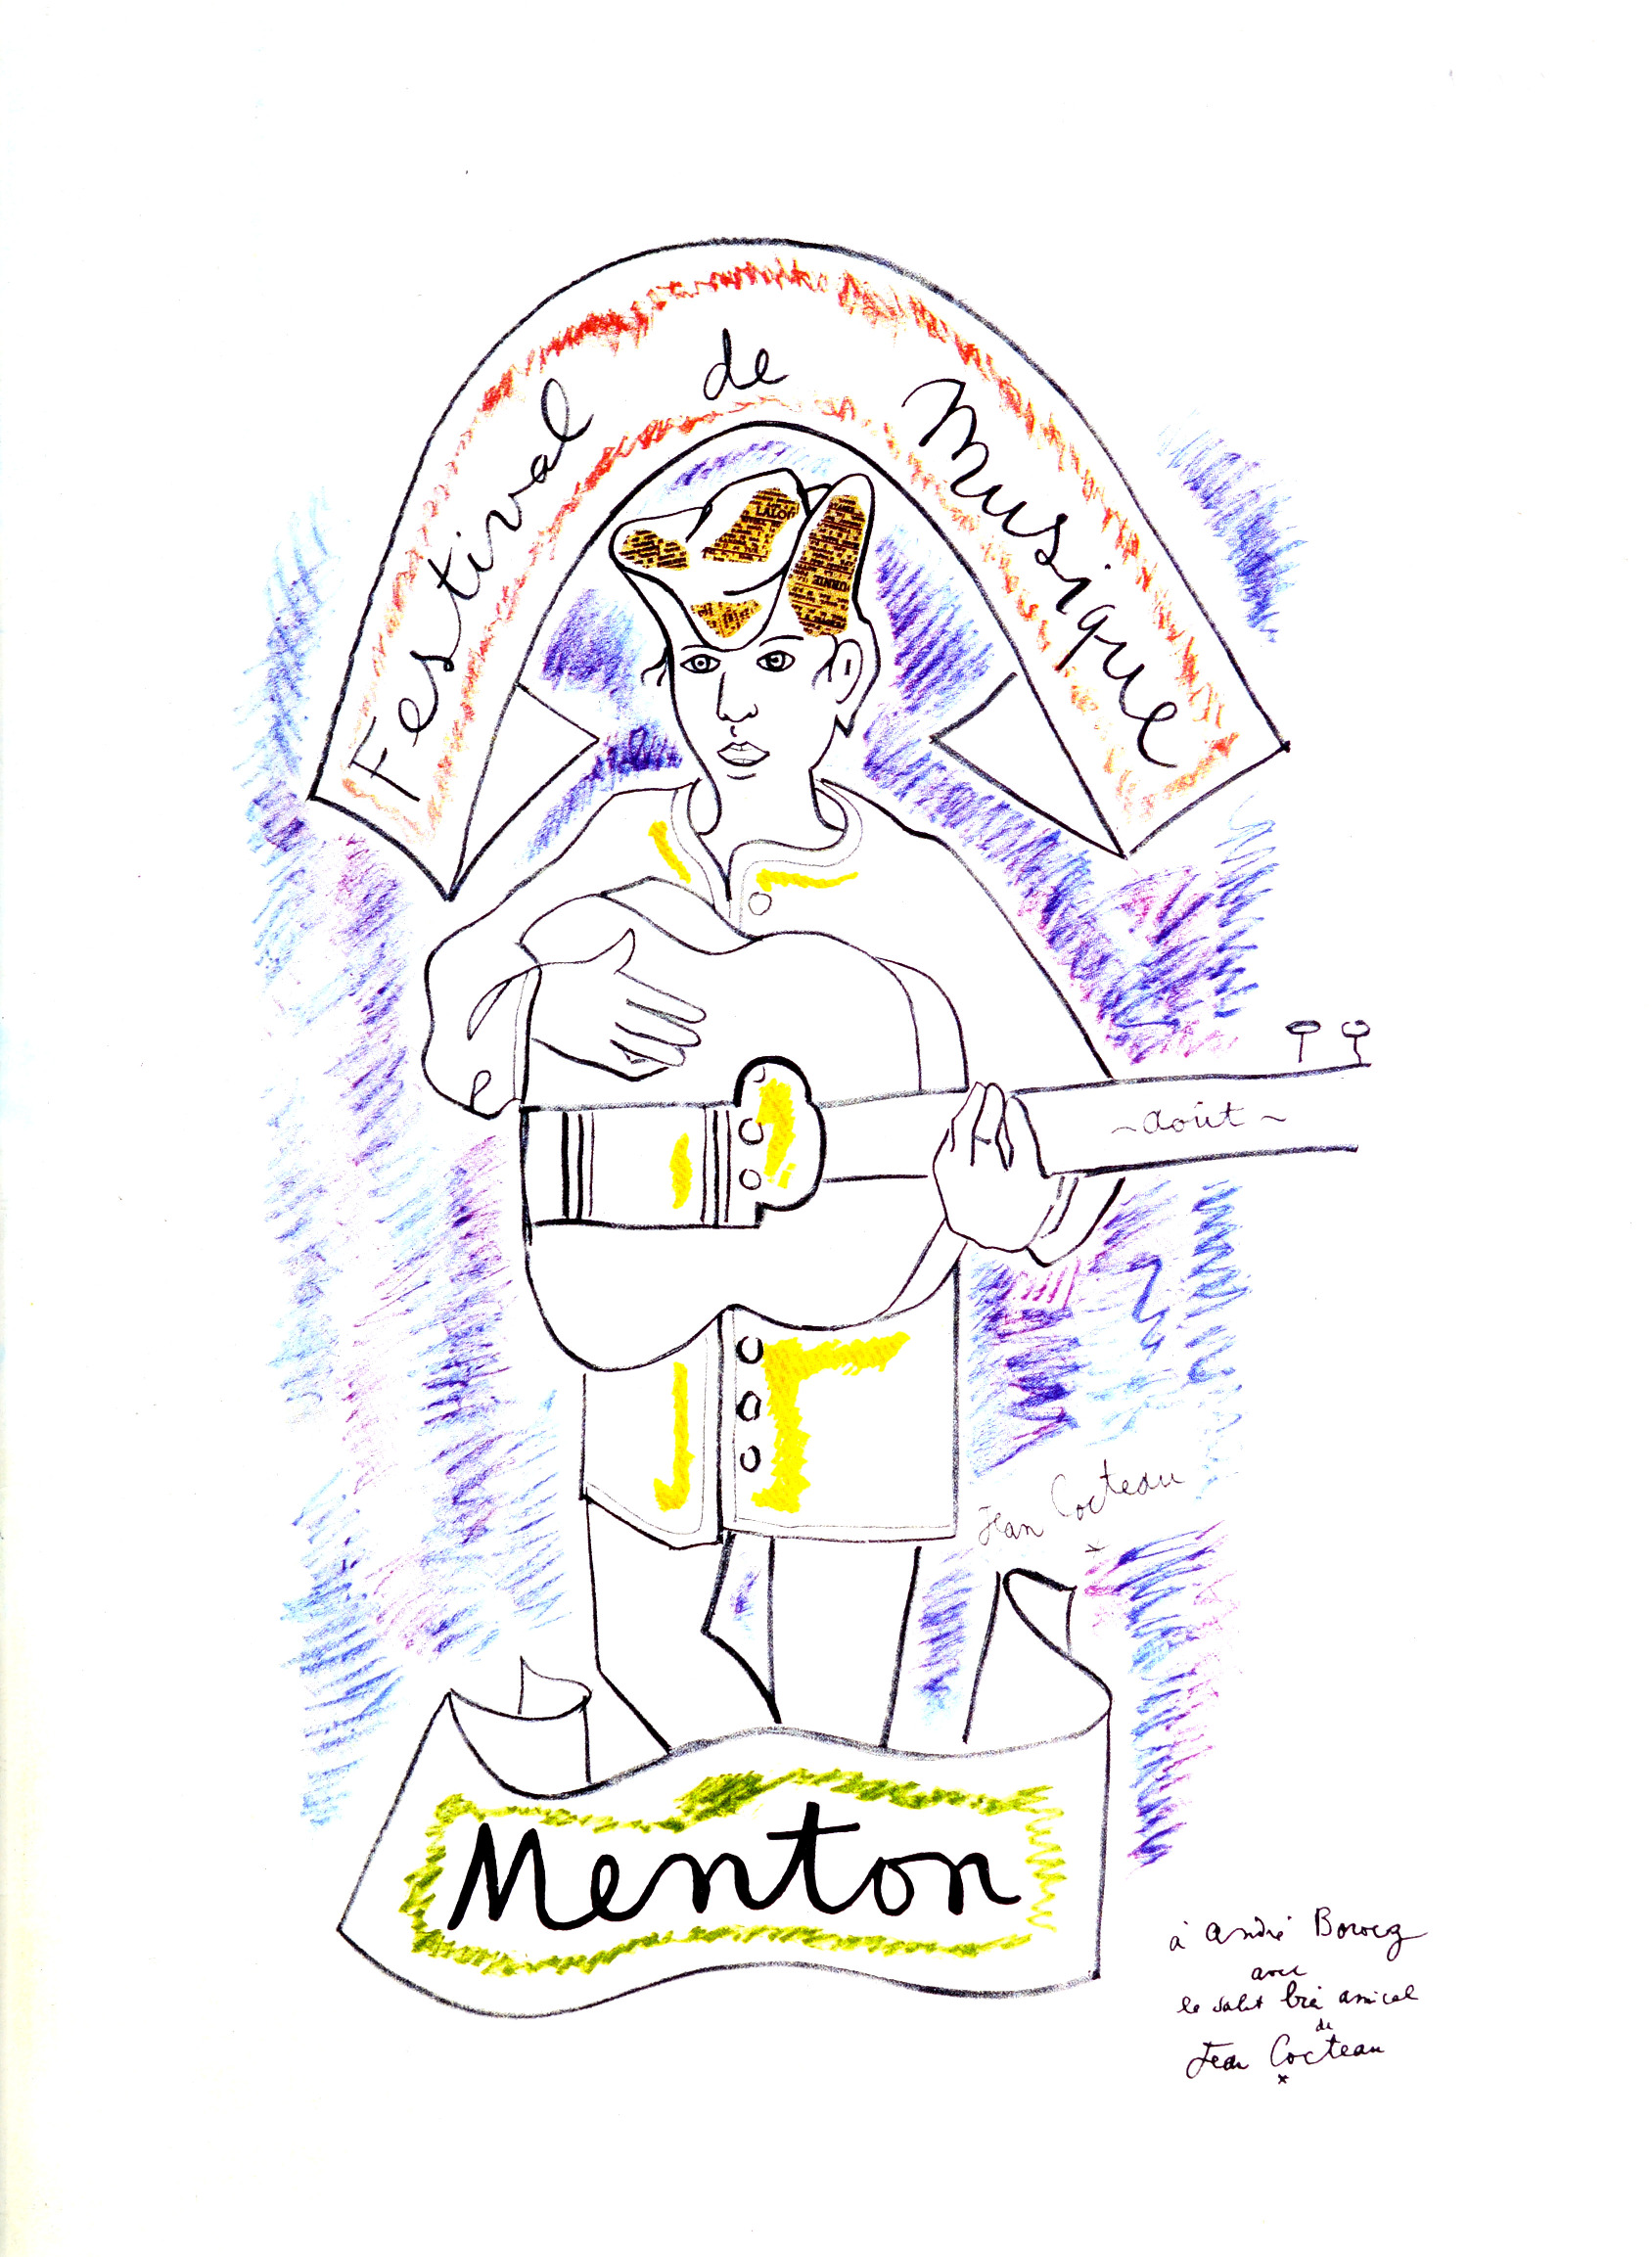 Festival de Musique
LALO
~ août ~
Jean Cocteau
Menton
à André Borocz
avec
le salut très amical
de
Jean Cocteau